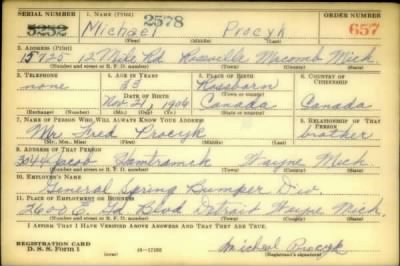 SERIAL NUMBER 1. NAME (Print) 2578 ORDER NUMBER
5252 Michael Procyk 657
(First) (Middle) (Last)
2. ADDRESS (Print)
15725 12 Mile Rd Roseville Macomb Mich.
(Number and street or R. F. D. number) (Town) (County) (State)
3. TELEPHONE 4. AGE IN YEARS 5. PLACE OF BIRTH 6. COUNTRY OF CITIZENSHIP
none 33 Rossborn
DATE OF BIRTH (Town or county)
Nov. 21, 1906 Canada Canada
(Exchange) (Number) (Mo.) (Day) (Yr.) (State or country)
7. NAME OF PERSON WHO WILL ALWAYS KNOW YOUR ADDRESS 8. RELATIONSHIP OF THAT PERSON
Mr. Fred Procyk brother
(Mr., Mrs., Miss) (First) (Middle) (Last)
9. ADDRESS OF THAT PERSON
3044 Jacob Hamtramck Wayne Mich
(Number and street or R. F. D. number) (Town) (County) (State)
10. EMPLOYER'S NAME
General Spring Bumper Div
11. PLACE OF EMPLOYMENT OR BUSINESS
2600 E. Gd. Blvd Detroit Wayne Mich.
(Number and street or R. F. D. number) (Town) (County) (State)
I AFFIRM THAT I HAVE VERIFIED ABOVE ANSWERS AND THAT THEY ARE TRUE.
REGISTRATION CARD
D. S. S. Form 1 Michael Procyk
(Registrant's signature)